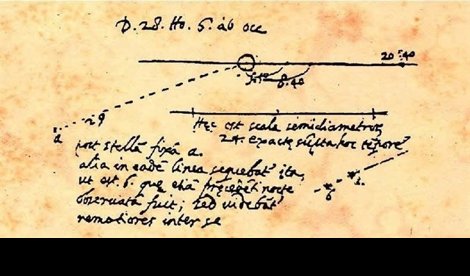 D. 28. Ho. 6. ab occ
20.40
8.40
a
Hęc est scala semidiametroru
24. exacte sūpta hoc tēpore
post stellā fixā a.
alia in eadē linea sequebat ita,
ut est .b. quę etiā pręcedēti nocte
observata fuit; sed videbāt
remotiores inter se
b